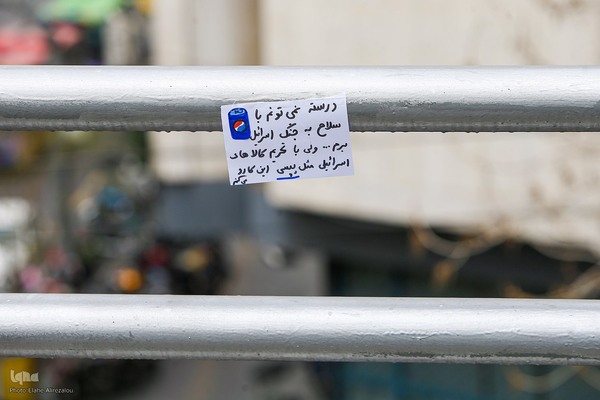 درسته نمی تونم با
سلاح به جنگ اسرائیل
برم... ولی با تحریم کالاهای
اسرائیلی مثل پپسی این کارو
می‌کنم
pepsi
iqna
Photo: Elahe Alirezalou